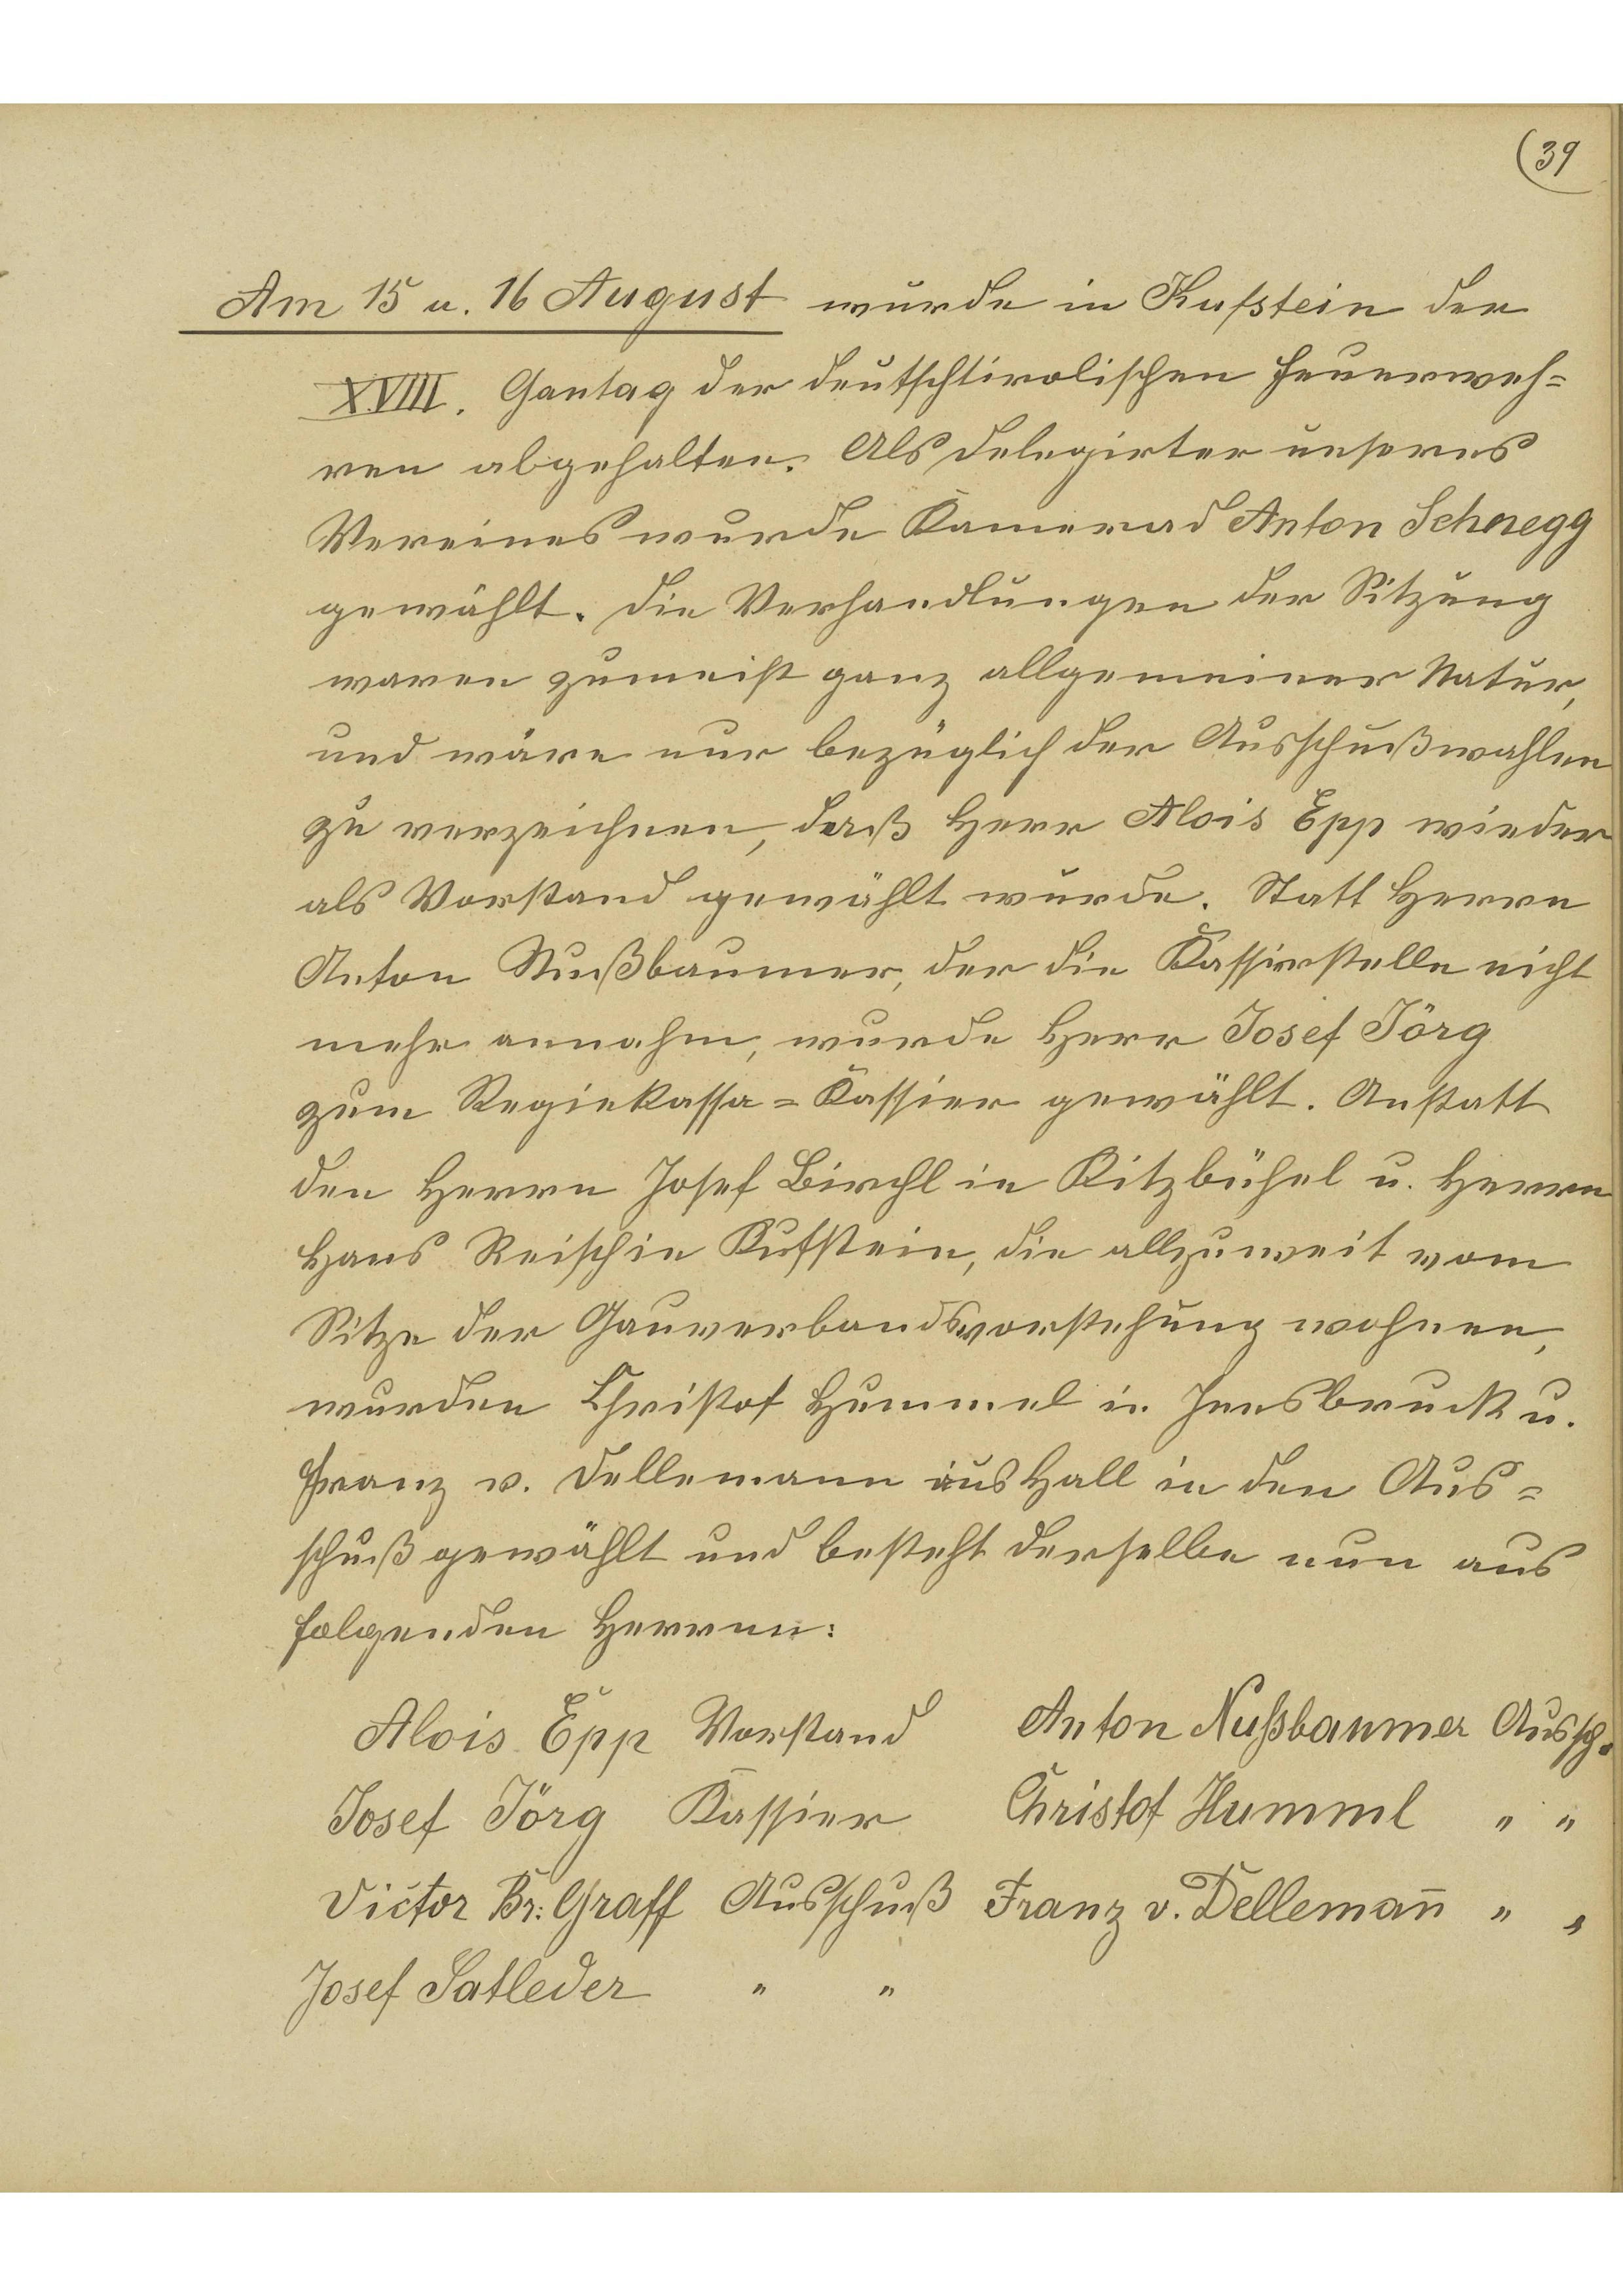 (39
Am 15 u. 16 August wurde in Kufstein der
XVIII. Gautag der deutschtirolischen Feuerweh=
ren abgehalten. Als Delegirter unseres
Vereines wurde Kamerad Anton Schnegg
gewählt. Die Verhandlungen der Sitzung
waren zumeist ganz allgemeiner Natur,
und wäre nur bezüglich der Ausschußwahlen
zu verzeichnen, daß Herr Alois Epp wieder
als Vorstand gewählt wurde. Statt Herrn
Anton Nußbaumer, der die Kassierstelle nicht
mehr annahm, wurde Herr Josef Jörg
zum Regiekassa=Kassier gewählt. Anstatt
den Herrn Josef Pirchl in Kitzbühel u. Herrn
Hans Reisch in Kufstein, die allzuweit vom
Sitze der Gauverbandsvorstehung wohnen,
wurden Christof Hummel in Innsbruck u.
Franz v. Dellemann aus Hall in den Aus=
schuß gewählt und besteht derselbe nun aus
folgenden Herren:
Alois Epp Vorstand Anton Nußbaumer Aussch.
Josef Jörg Kassier Christof Humml " "
Victor Br: Graff Ausschuß Franz v. Dellemañ " "
Josef Satleder " "